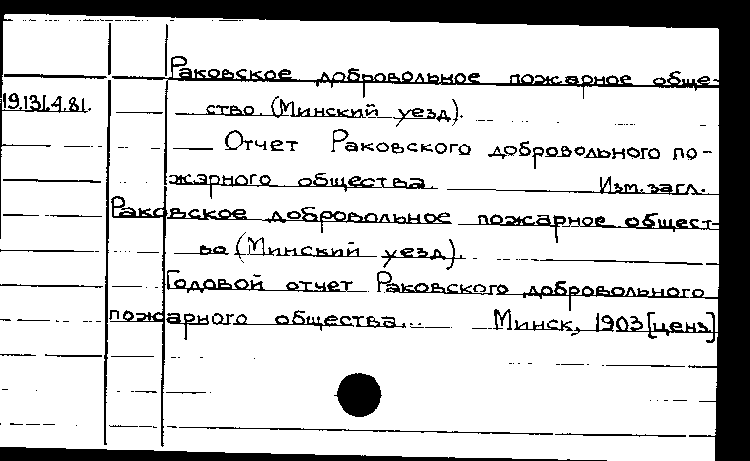 Раковское добровольное пожарное обще-
19.131.4.81.
ство. (Минский уезд).
Отчет Раковского добровольного по-
жарного общества. Изм. загл.
Раковское добровольное пожарное общест-
во (Минский уезд).
Годовой отчет Раковского добровольного
пожарного общества... Минск, 1903 [ценз]